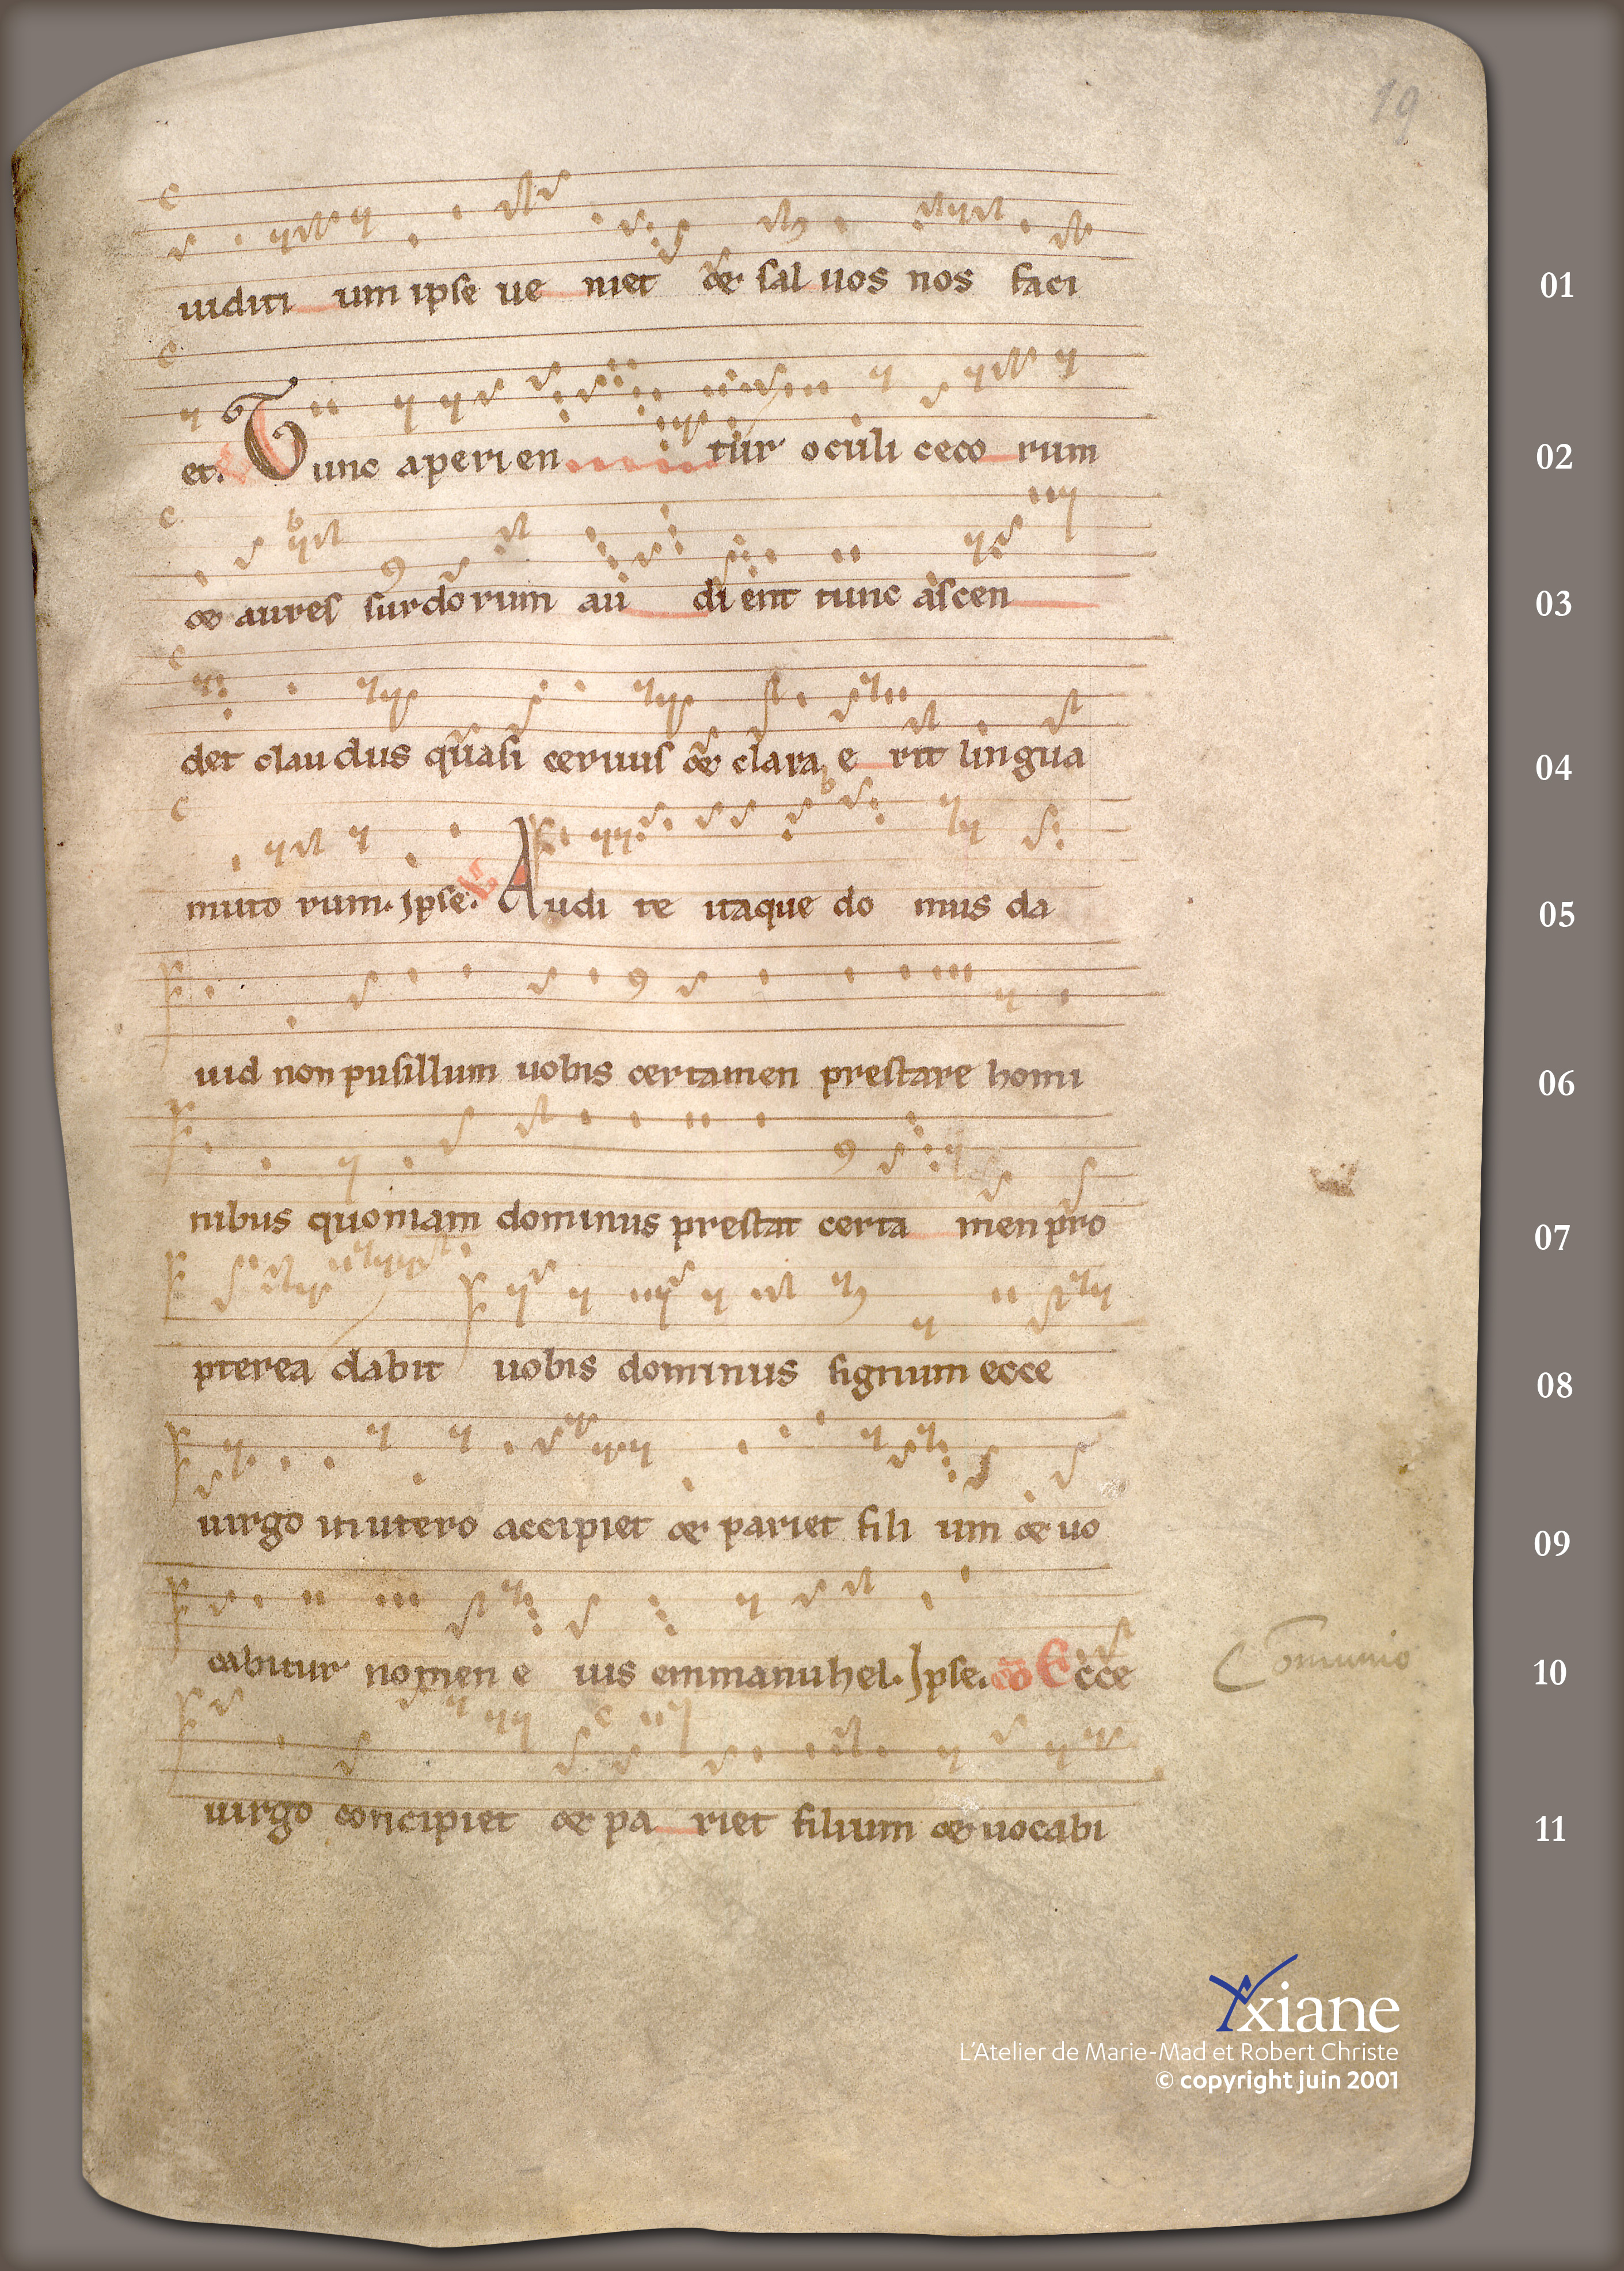 19
uiditi um ipse ue niet & sal uos nos faci
01
et. Tunc aperien tur oculi ceco rum
02
& aures surdorum au dient tunc ascen
03
det claudus quasi ceruus & clara e rit lingua
04
muto rum. ipse. V Audi te itaque do mus da
05
uid non pusillum uobis certamen prestare homi
06
nibus quoniam dominus prestat certa men pro
07
pterea dabit uobis dominus signum ecce
08
uirgo in utero accipiet & pariet fili um & uo
09
cabitur nomen e ius emmanuhel. Ipse. cō Ecce
Comunio
10
uirgo concipiet & pa riet filium & uocabi
11
xiane
L'Atelier de Marie-Mad et Robert Christe
© copyright juin 2001